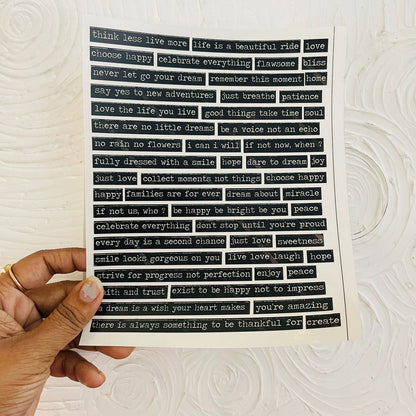 think less live more life is a beautiful ride love
choose happy celebrate everything flawsome bliss
never let go your dream remember this moment home
say yes to new adventures just breathe patience
love the life you live good things take time soul
there are no little dreams be a voice not an echo
no rain no flowers i can i will if not now, when ?
fully dressed with a smile hope dare to dream joy
just love collect moments not things choose happy
happy families are for ever dream about miracle
if not us, who ? be happy be bright be you peace
celebrate everything don't stop until you're proud
every day is a second chance just love sweetness
smile looks gorgeous on you live love laugh hope
strive for progress not perfection enjoy peace
faith and trust exist to be happy not to impress
a dream is a wish your heart makes you're amazing
there is always something to be thankful for create